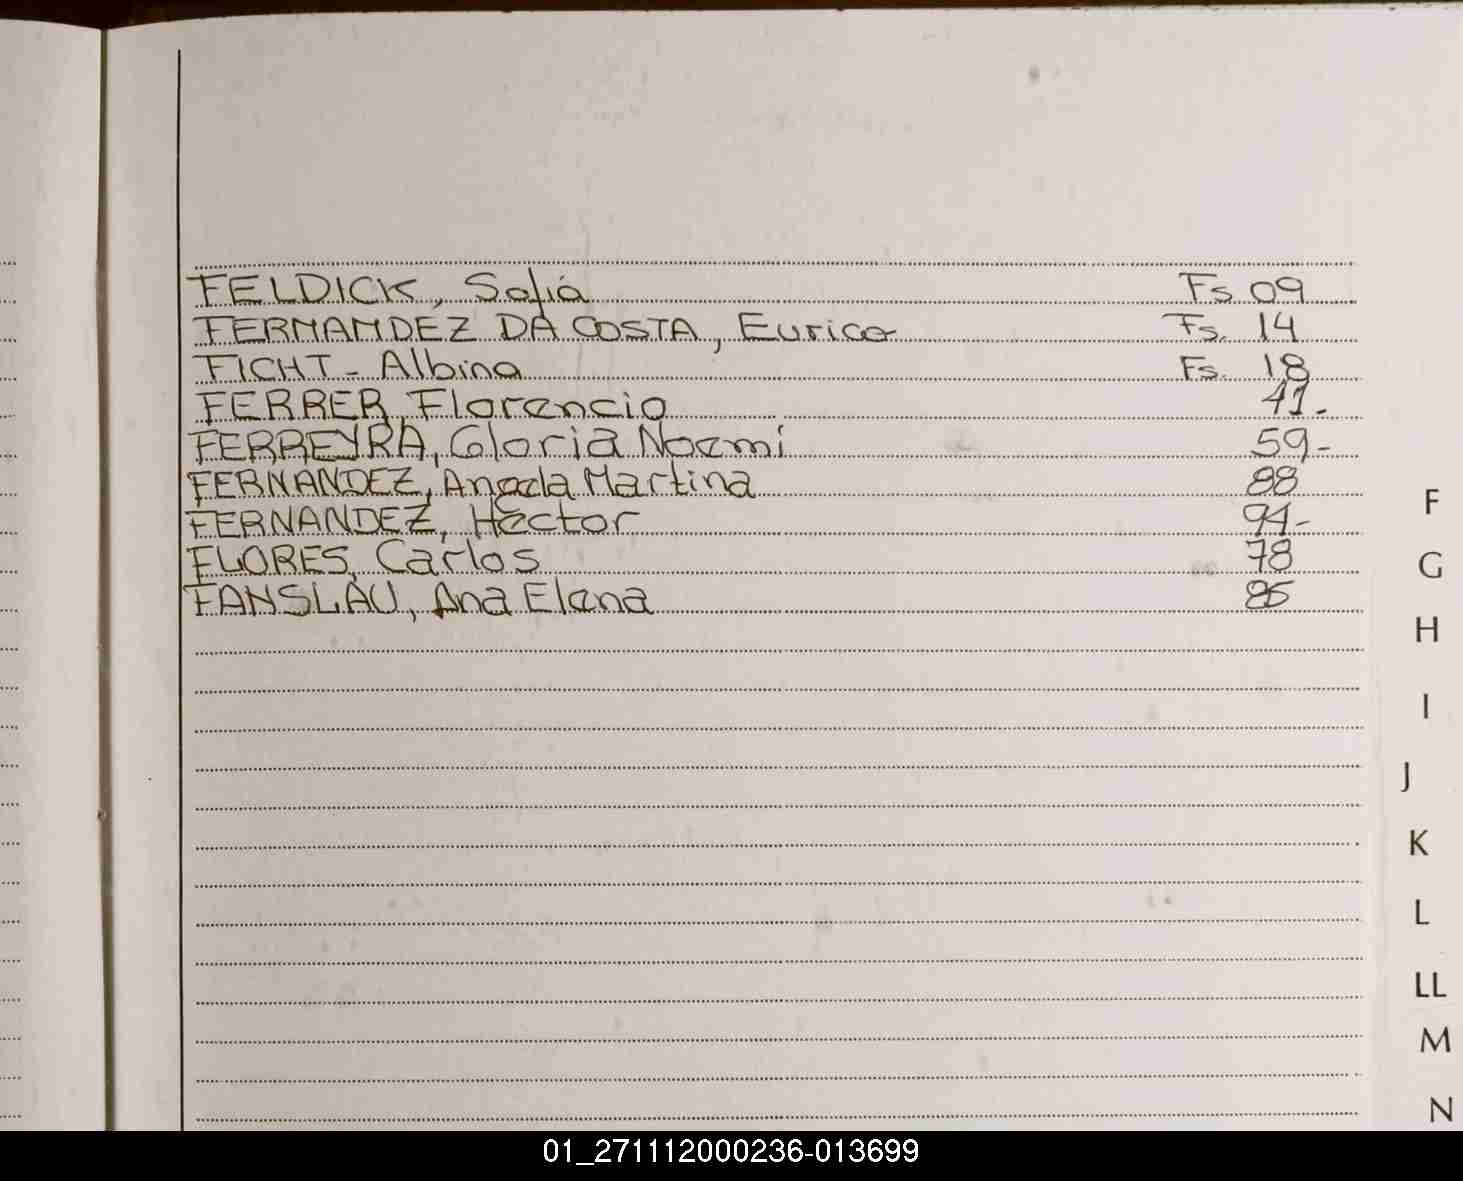 FELDICK, Sofia Fs 09
FERNANDEZ DA COSTA, Eurico Fs. 14
FICHT - Albino Fs. 18
FERRER, Florencio 41-
FERREYRA, Gloria Noemi 59-
FERNANDEZ, Angela Martina 88
FERNANDEZ, Hector 91-
FLORES, Carlos 78
FANSLAU, Ana Elena 86
F
G
H
I
J
K
L
LL
M
N
01_271112000236-013699